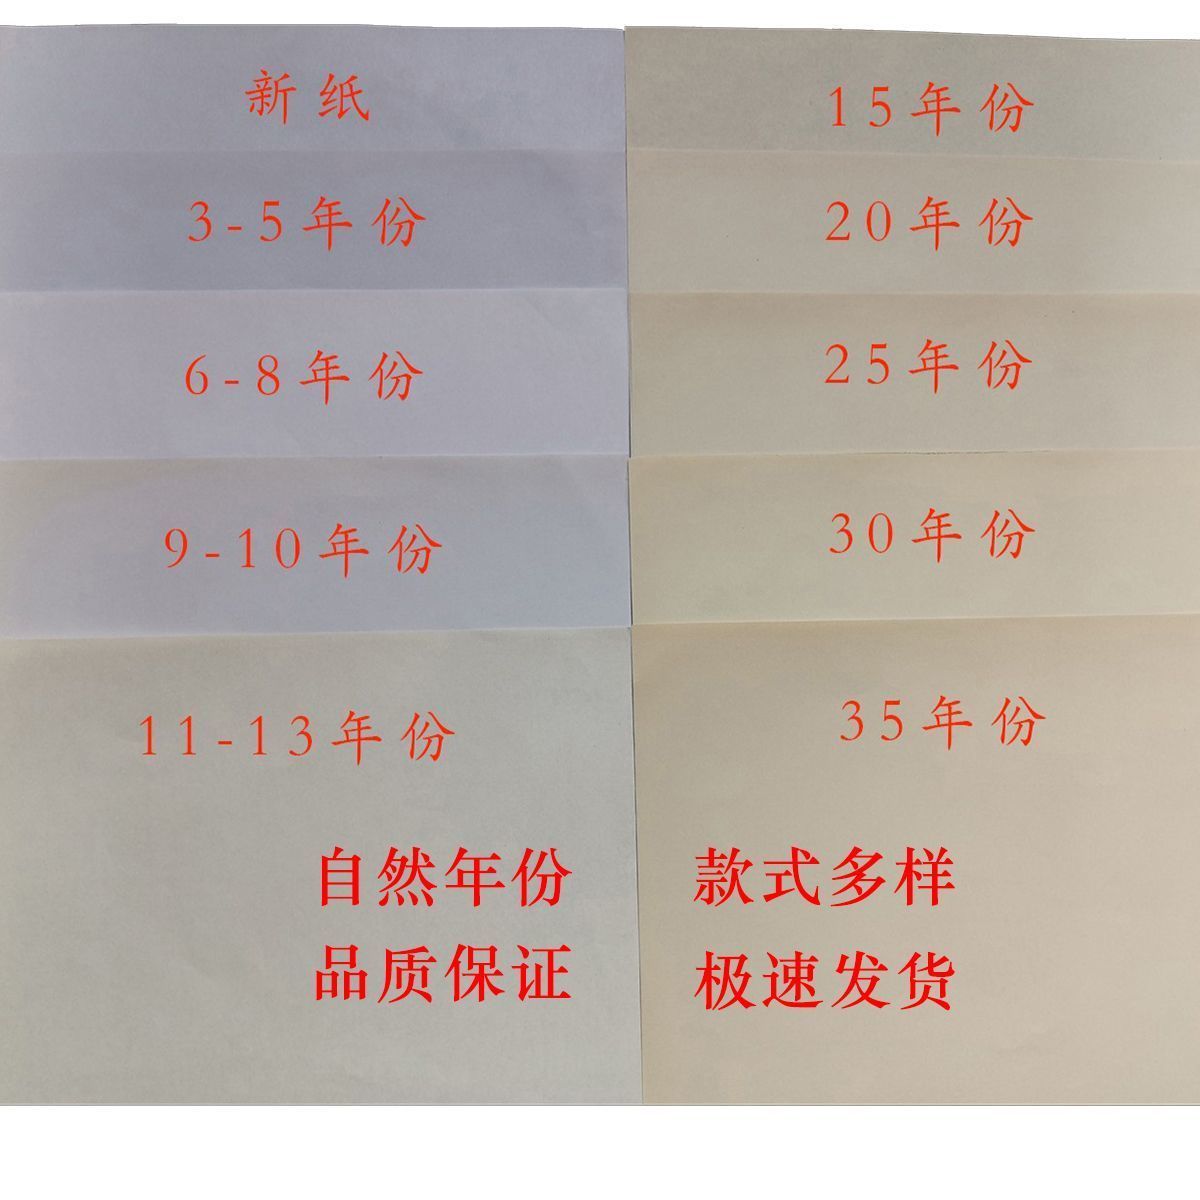 新纸
3-5年份
6-8年份
9-10年份
11-13年份
15年份
20年份
25年份
30年份
35年份
自然年份
品质保证
款式多样
极速发货